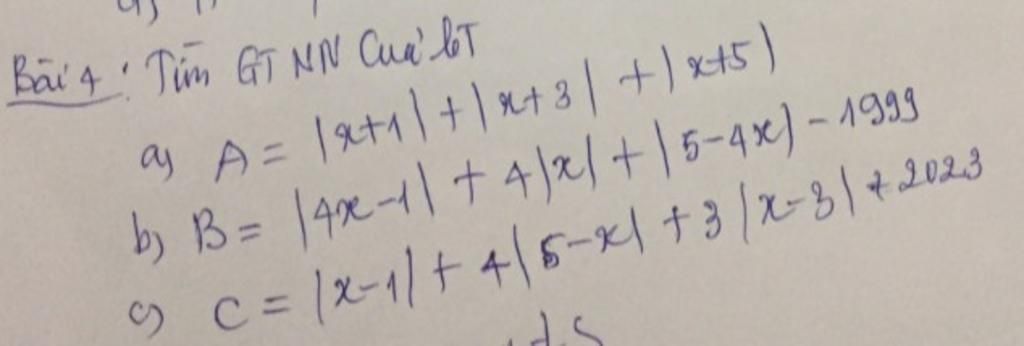 Bài 4: Tìm GTNN Của bT
a) A = |x+1| + |x+3| + |x+5|
b) B = |4x-1| + 4|x| + |5-4x| - 1999
c) C = |x-1| + 4|5-x| + 3|x-3| + 2023